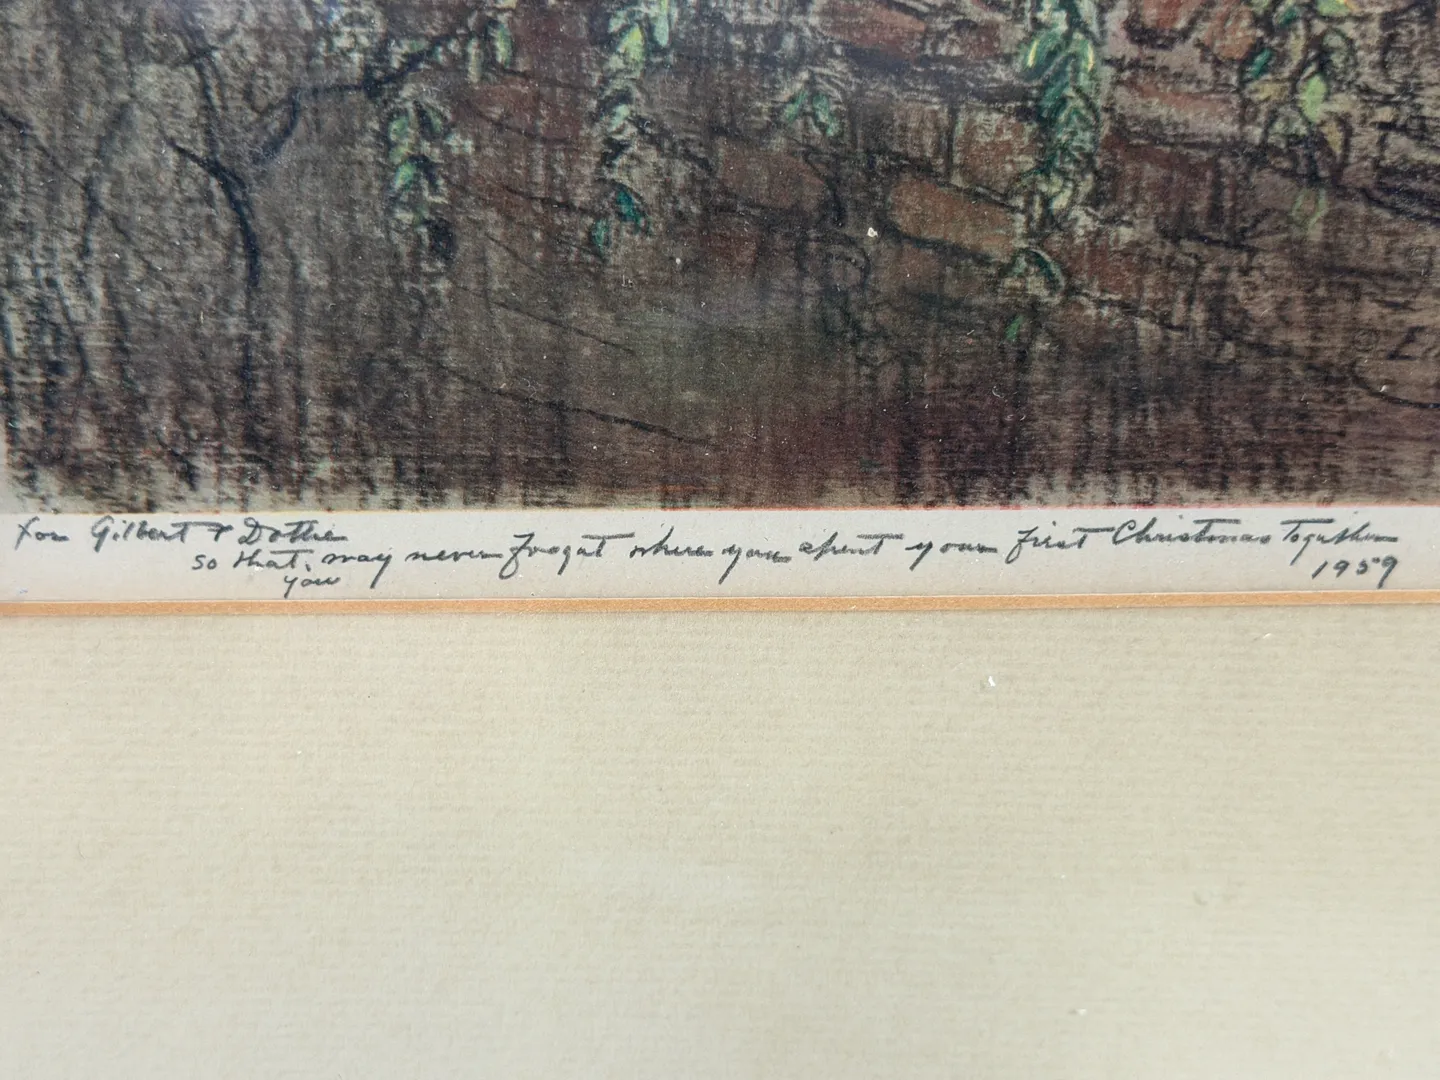 For Gilbert & Dottie
so that you may never forget where you spent your first Christmas Together
1959